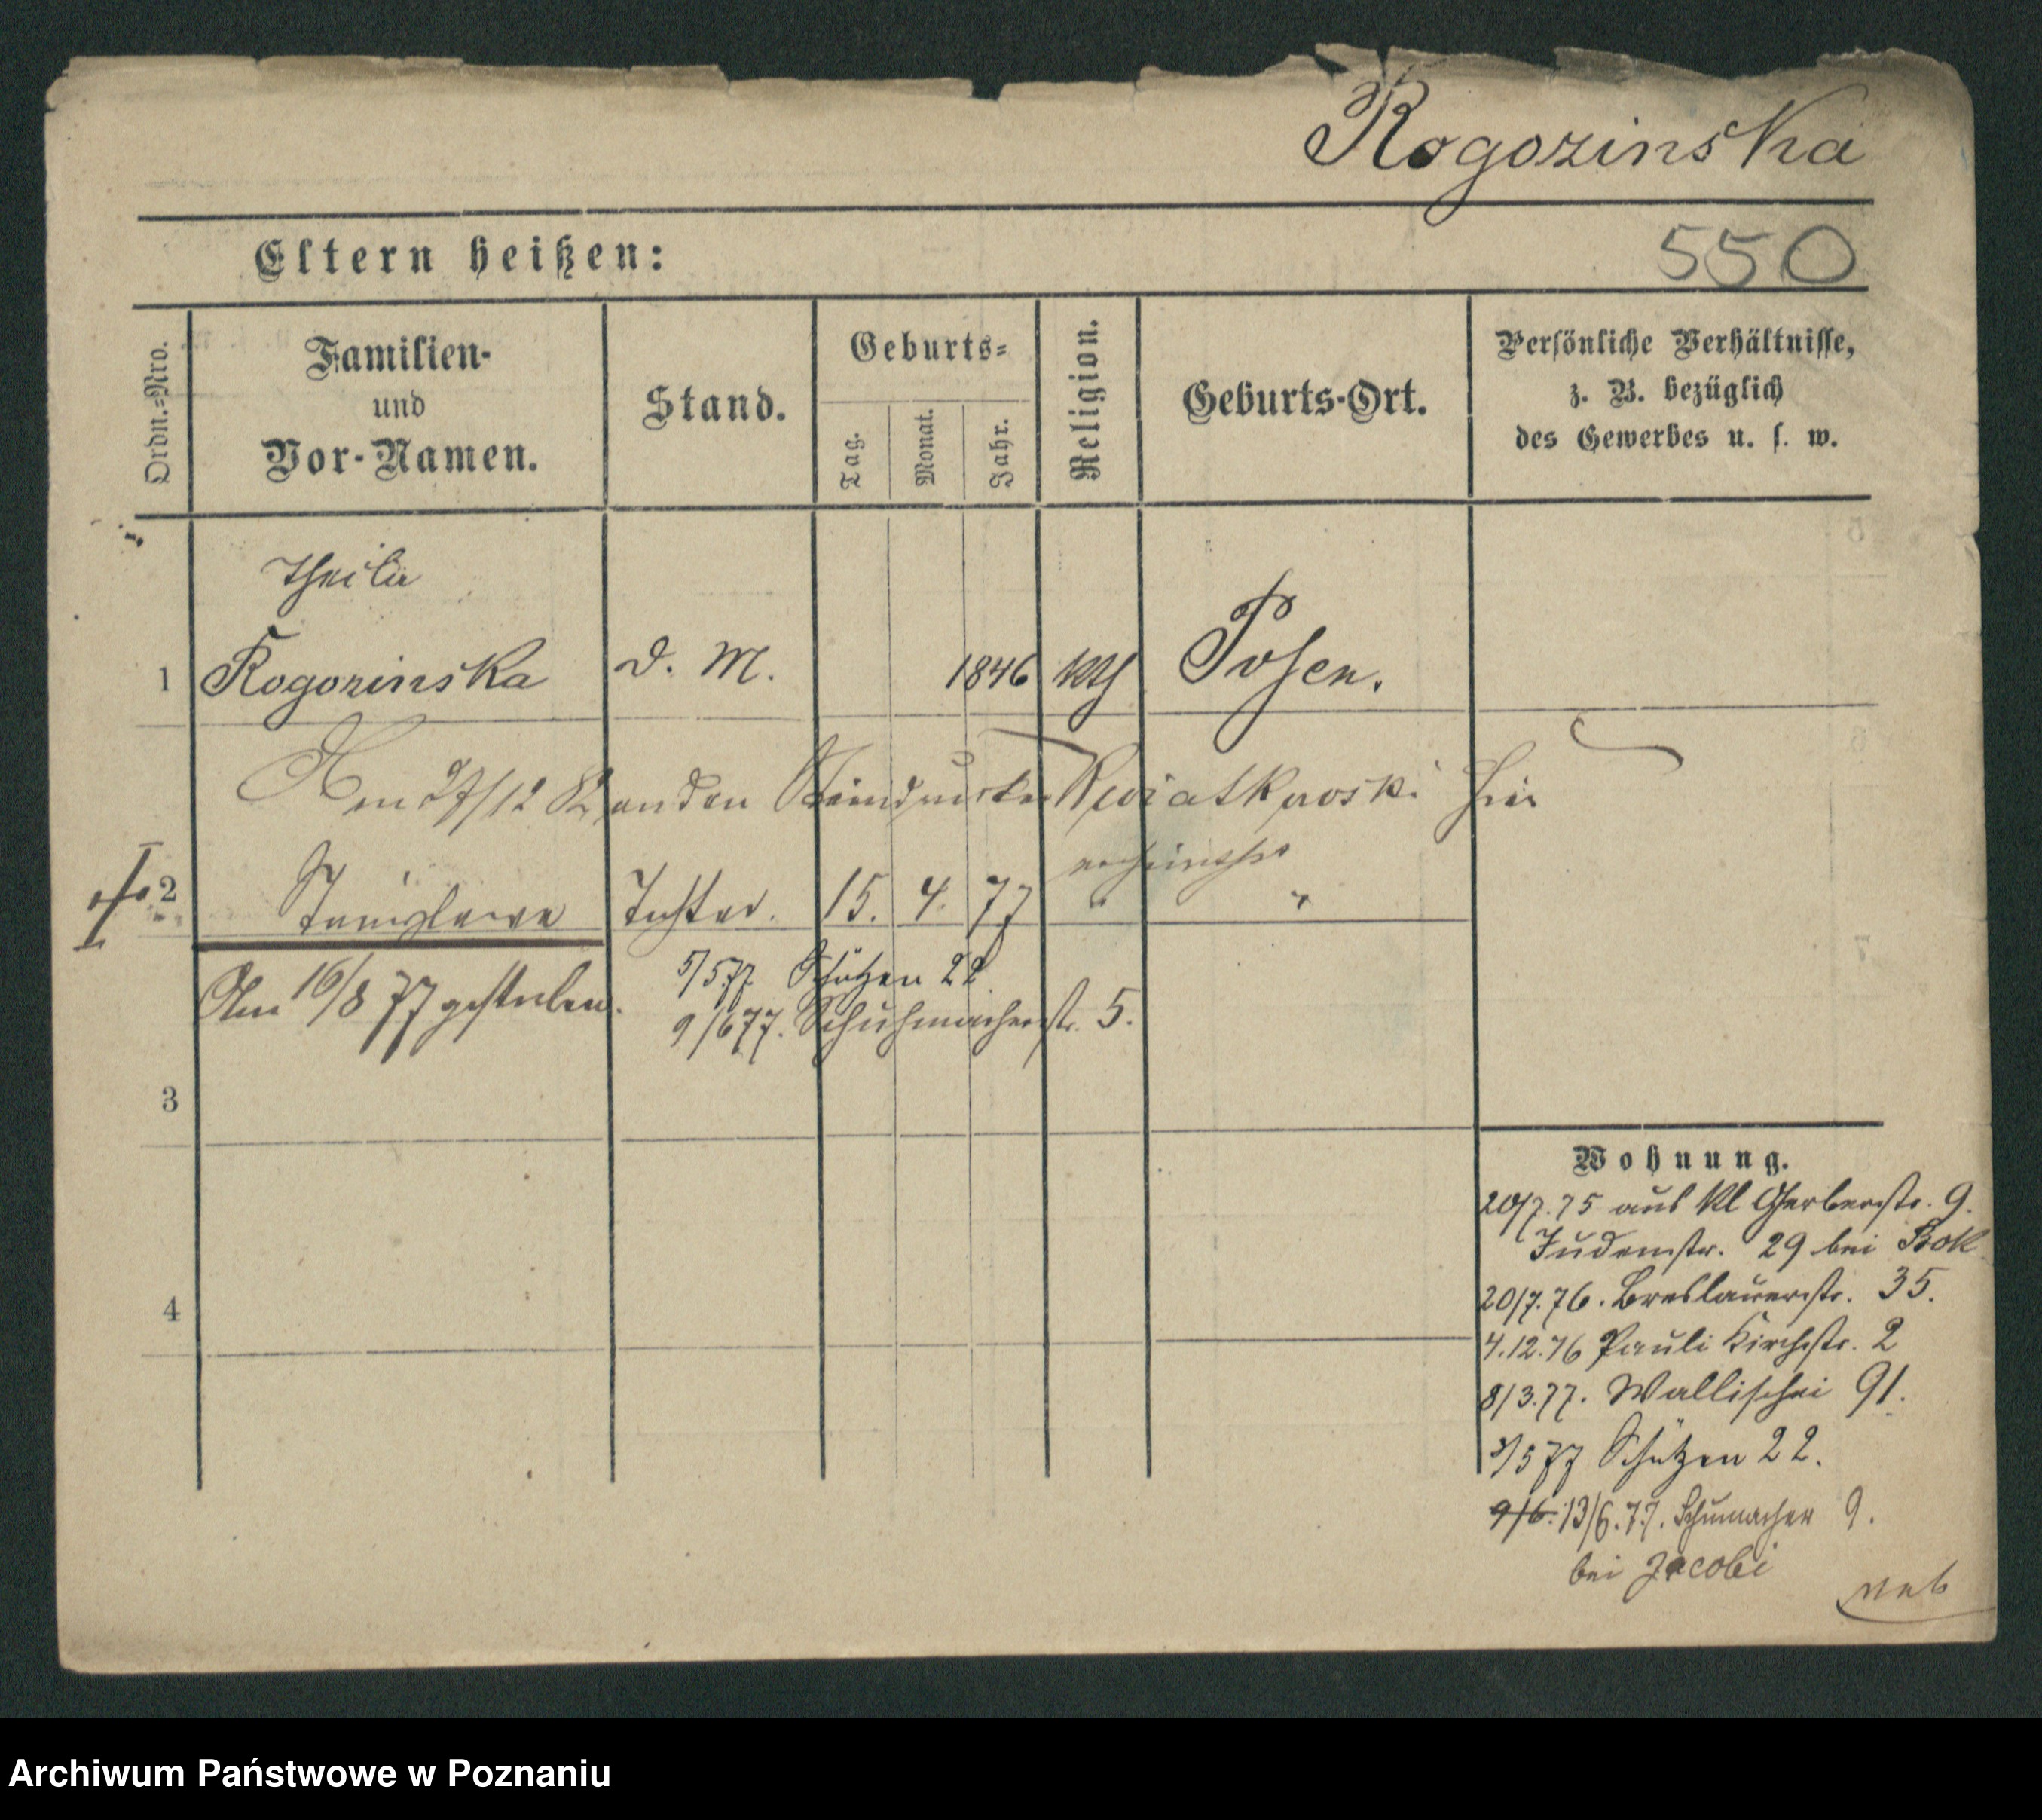 Rogozinska
550
Eltern heißen:
Ordn.-Nro.
Familien-
und
Vor-Namen.
Stand.
Geburts-
Tag.
Monat.
Jahr.
Religion.
Geburts-Ort.
Persönliche Verhältnisse,
z. B. bezüglich
des Gewerbes u. s. w.
1
Rogozinska
d. M.
1846
kth
Posen.
Am 27/12 82 an den Steindrucker Kwiatkowski hier
verheirathet
2
Stanislawa
Tochter.
15.
4.
77
"
"
Am 16/8 77 gestorben.
5/5 77 Schützen 22.
9/6 77. Schuhmacherstr. 5.
3
4
Wohnung.
20/7.75 aus kl Gerberstr. 9.
Judenstr. 29 bei Bok
20/7.76. Breslauerstr. 35.
4.12.76 Pauli Kirchstr. 2
8/3.77. Wallischei 91.
5/5 77 Schützen 22.
9/6. 13/6.77. Schumacher 9.
bei Jacobi
Archiwum Państwowe w Poznaniu